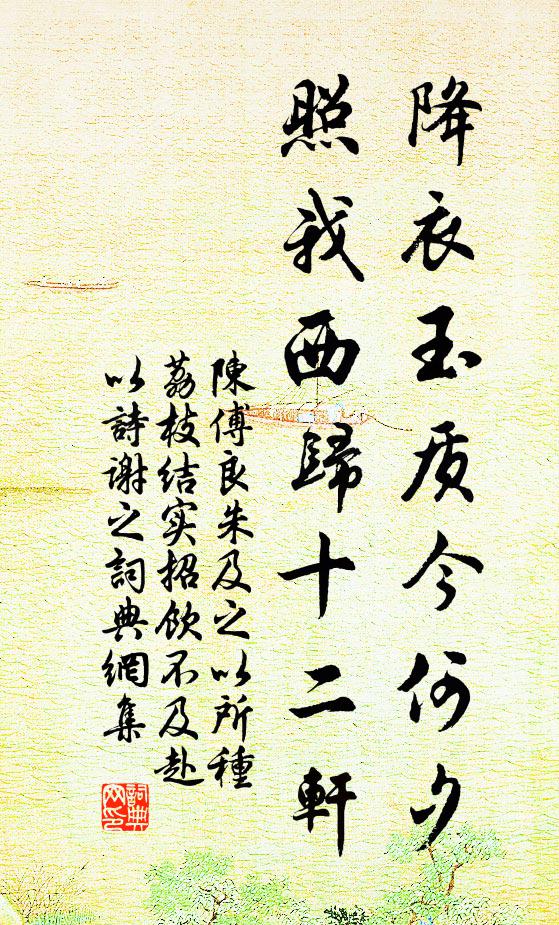 降衣玉质今何夕
照我西歸十二軒
陳傅良朱及之以所種
荔枝结实招飲不及赴
以詩谢之詞典網集
詞典网印